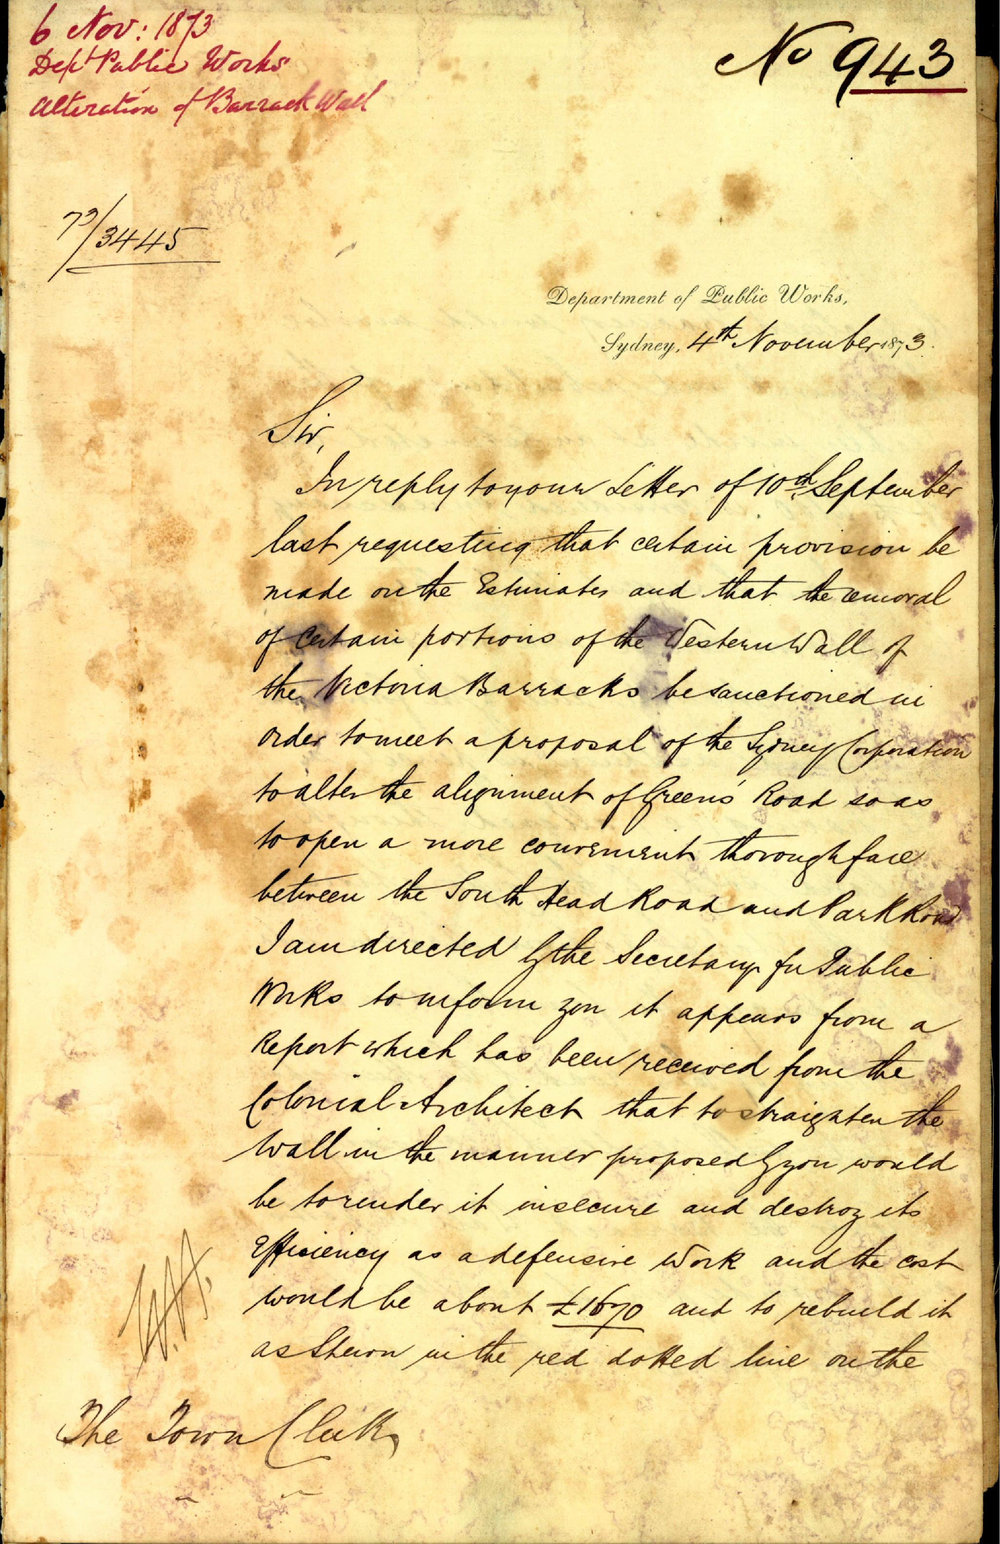 6 Nov: 1873
Dept Public Works
Alteration of Barrack Wall
No 943
73/3445
Department of Public Works,
Sydney, 4th November 1873.
Sir,
In reply to your Letter of 10th September
last requesting that certain provision be
made on the Estimates and that the removal
of certain portions of the Western Wall of
the Victoria Barracks be sanctioned in
order to meet a proposal of the Sydney Corporation
to alter the alignment of Green's Road so as
to open a more convenient thoroughfare
between the South Head Road and Park Road
I am directed by the Secretary for Public
Works to inform you it appears from a
Report which has been received from the
Colonial Architect that to straighten the
Wall in the manner proposed by you would
be to render it insecure and destroy its
Efficiency as a defensive Work and the cost
would be about £1670 and to rebuild it
as Shewn in the red dotted line on the
The Town Clerk